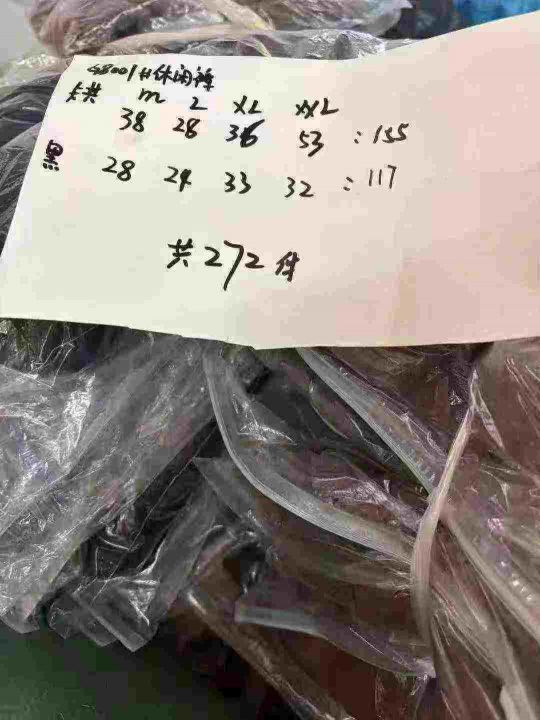 休闲裤
卡其 M L XL XXL
38 28 36 53 : 155
黑 28 24 33 32 : 117
共 272 件